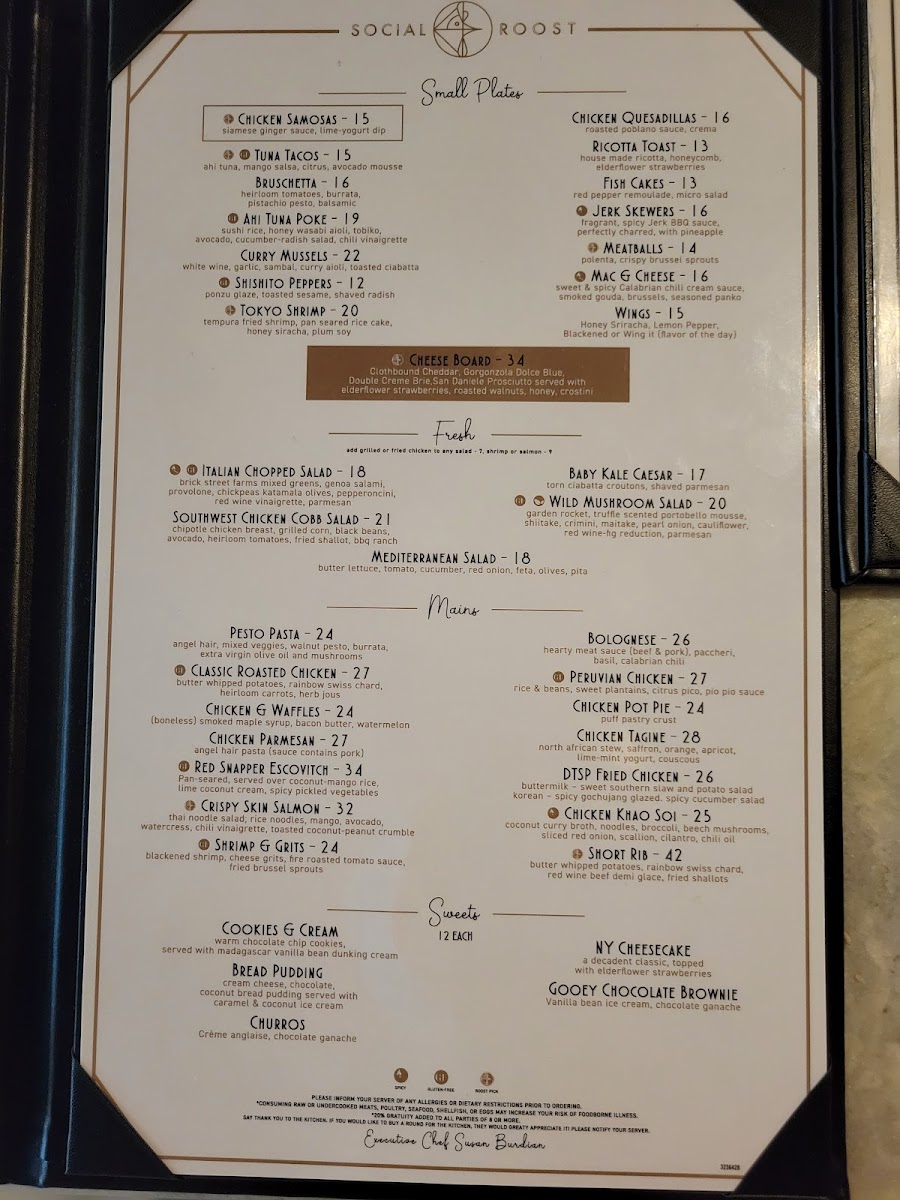 SOCIAL ROOST
Small Plates
CHICKEN SAMOSAS - 15
siamese ginger sauce, lime-yogurt dip
GF TUNA TACOS - 15
ahi tuna, mango salsa, citrus, avocado mousse
BRUSCHETTA - 16
heirloom tomatoes, burrata,
pistachio pesto, balsamic
GF AHI TUNA POKE - 19
sushi rice, honey wasabi aioli, tobiko,
avocado, cucumber-radish salad, chili vinaigrette
CURRY MUSSELS - 22
white wine, garlic, sambal, curry aioli, toasted ciabatta
GF SHISHITO PEPPERS - 12
ponzu glaze, toasted sesame, shaved radish
TOKYO SHRIMP - 20
tempura fried shrimp, pan seared rice cake,
honey siracha, plum soy
CHICKEN QUESADILLAS - 16
roasted poblano sauce, crema
RICOTTA TOAST - 13
house made ricotta, honeycomb,
elderflower strawberries
FISH CAKES - 13
red pepper remoulade, micro salad
JERK SKEWERS - 16
fragrant, spicy Jerk BBQ sauce,
perfectly charred, with pineapple
MEATBALLS - 14
polenta, crispy brussel sprouts
MAC & CHEESE - 16
sweet & spicy Calabrian chili cream sauce,
smoked gouda, brussels, seasoned panko
WINGS - 15
Honey Sriracha, Lemon Pepper,
Blackened or Wing it (flavor of the day)
CHEESE BOARD - 34
Clothbound Cheddar, Gorgonzola Dolce Blue,
Double Creme Brie,San Daniele Prosciutto served with
elderflower strawberries, roasted walnuts, honey, crostini
Fresh
add grilled or fried chicken to any salad - 7, shrimp or salmon - 9
GF ITALIAN CHOPPED SALAD - 18
brick street farms mixed greens, genoa salami,
provolone, chickpeas katamala olives, pepperoncini,
red wine vinaigrette, parmesan
SOUTHWEST CHICKEN COBB SALAD - 21
chipotle chicken breast, grilled corn, black beans,
avocado, heirloom tomatoes, fried shallot, bbq ranch
BABY KALE CAESAR - 17
torn ciabatta croutons, shaved parmesan
GF WILD MUSHROOM SALAD - 20
garden rocket, truffle scented portobello mousse,
shiitake, crimini, maitake, pearl onion, cauliflower,
red wine-fig reduction, parmesan
MEDITERRANEAN SALAD - 18
butter lettuce, tomato, cucumber, red onion, feta, olives, pita
Mains
PESTO PASTA - 24
angel hair, mixed veggies, walnut pesto, burrata,
extra virgin olive oil and mushrooms
GF CLASSIC ROASTED CHICKEN - 27
butter whipped potatoes, rainbow swiss chard,
heirloom carrots, herb jous
CHICKEN & WAFFLES - 24
(boneless) smoked maple syrup, bacon butter, watermelon
CHICKEN PARMESAN - 27
angel hair pasta (sauce contains pork)
GF RED SNAPPER ESCOVITCH - 34
Pan-seared, served over coconut-mango rice,
lime coconut cream, spicy pickled vegetables
CRISPY SKIN SALMON - 32
thai noodle salad; rice noodles, mango, avocado,
watercress, chili vinaigrette, toasted coconut-peanut crumble
GF SHRIMP & GRITS - 24
blackened shrimp, cheese grits, fire roasted tomato sauce,
fried brussel sprouts
BOLOGNESE - 26
hearty meat sauce (beef & pork), paccheri,
basil, calabrian chili
GF PERUVIAN CHICKEN - 27
rice & beans, sweet plantains, citrus pico, pio pio sauce
CHICKEN POT PIE - 24
puff pastry crust
CHICKEN TAGINE - 28
north african stew, saffron, orange, apricot,
lime-mint yogurt, couscous
DTSP FRIED CHICKEN - 26
buttermilk - sweet southern slaw and potato salad
korean - spicy gochujang glazed. spicy cucumber salad
CHICKEN KHAO SOI - 25
coconut curry broth, noodles, broccoli, beech mushrooms,
sliced red onion, scallion, cilantro, chili oil
SHORT RIB - 42
butter whipped potatoes, rainbow swiss chard,
red wine beef demi glace, fried shallots
Sweets
12 EACH
COOKIES & CREAM
warm chocolate chip cookies,
served with madagascar vanilla bean dunking cream
BREAD PUDDING
cream cheese, chocolate,
coconut bread pudding served with
caramel & coconut ice cream
CHURROS
Crème anglaise, chocolate ganache
NY CHEESECAKE
a decadent classic, topped
with elderflower strawberries
GOOEY CHOCOLATE BROWNIE
Vanilla bean ice cream, chocolate ganache
GF
SPICY GLUTEN-FREE ROOST PICK
PLEASE INFORM YOUR SERVER OF ANY ALLERGIES OR DIETARY RESTRICTIONS PRIOR TO ORDERING.
*CONSUMING RAW OR UNDERCOOKED MEATS, POULTRY, SEAFOOD, SHELLFISH, OR EGGS MAY INCREASE YOUR RISK OF FOODBORNE ILLNESS.
*20% GRATUITY ADDED TO ALL PARTIES OF 8 OR MORE.
SAY THANK YOU TO THE KITCHEN. IF YOU WOULD LIKE TO BUY A ROUND FOR THE KITCHEN, THEY WOULD GREATY APPRECIATE IT! PLEASE NOTIFY YOUR SERVER.
Executive Chef Susan Burdian
323642B